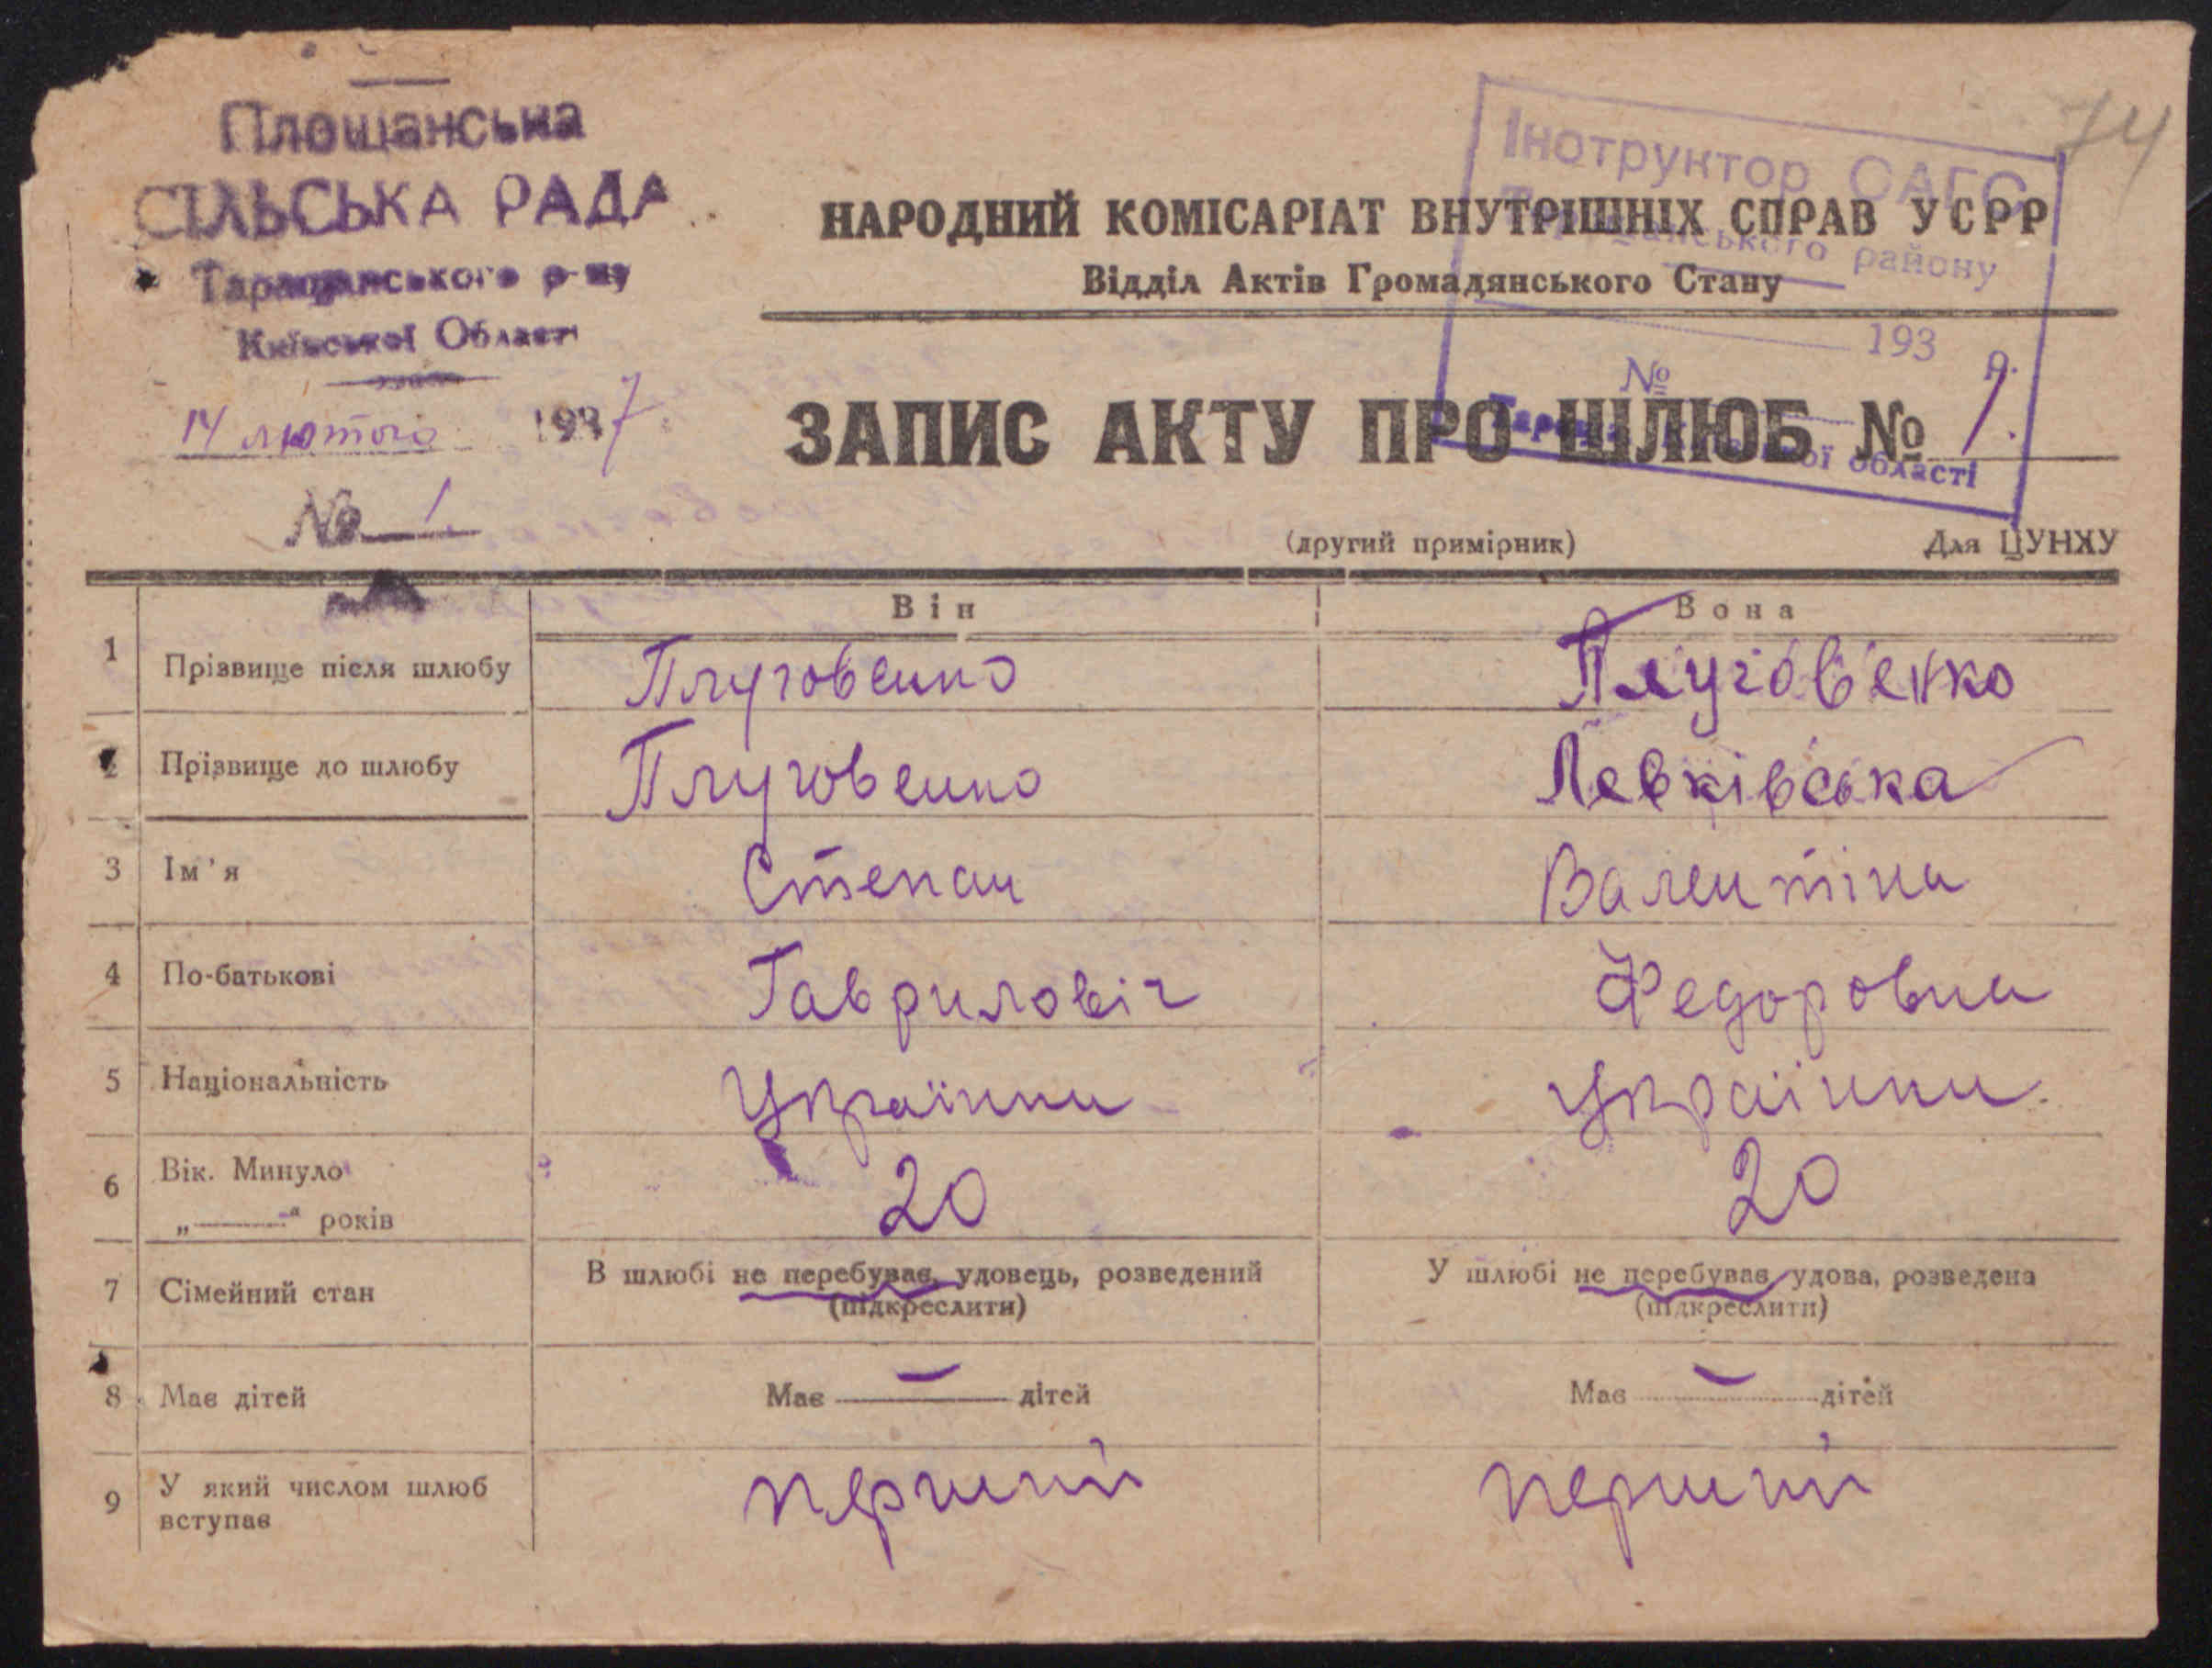 74
Площанська
СІЛЬСЬКА РАДА
Таращанського р-ну
Київської Області
14 лютого 1937
№ 1
Інструктор ОАГС
району
193 р.
№
ої області
НАРОДНИЙ КОМІСАРІАТ ВНУТРІШНІХ СПРАВ УСРР
Відділ Актів Громадянського Стану
ЗАПИС АКТУ ПРО ШЛЮБ № 1.
(другий примірник) Для ЦУНХУ
Він Вона
1 Прізвище після шлюбу Плуговенко Плуговенко
2 Прізвище до шлюбу Плуговенко Левківська
3 Ім'я Степан Валентіна
4 По-батькові Гавриловіч Федоровна
5 Національність Українка Українка
6 Вік. Минуло
„——“ років 20 20
7 Сімейний стан В шлюбі не перебував, удовець, розведений У шлюбі не перебував, удова, розведена
(підкреслити) (підкреслити)
8 Має дітей Має — дітей Має — дітей
9 У який числом шлюб
вступав перший перший